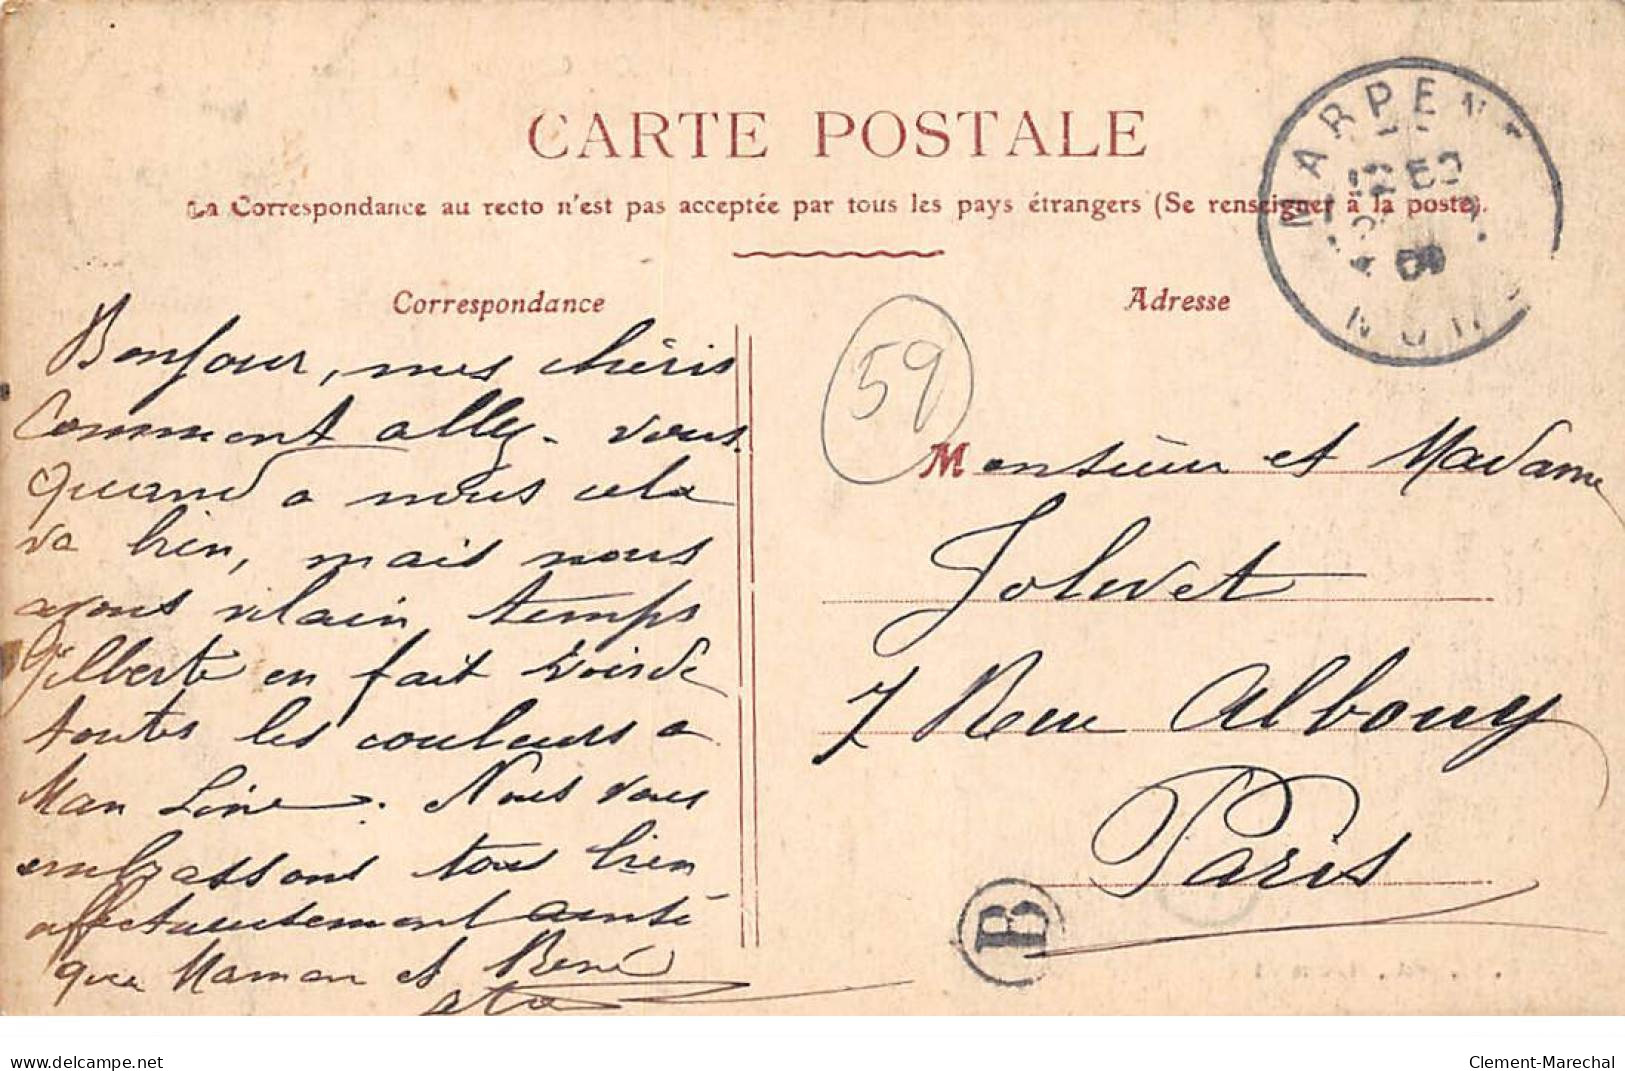 CARTE POSTALE
La Correspondance au recto n'est pas acceptée par tous les pays étrangers (Se renseigner à la poste).
Correspondance
Adresse
MARPENT
NORD
59
Bonjour, mes chéris
Comment allez-vous
Quand a nous cela
va bien, mais nous
avons vilain temps
Gilberte en fait voir de
toutes les couleurs a
Man Line. Nous vous
embrassons tous bien
affectueusement ainsi
que Maman et René
Monsieur et Madame
Jolivet
7 Rue Albouy
Paris
B
www.delcampe.net
Clement-Marechal